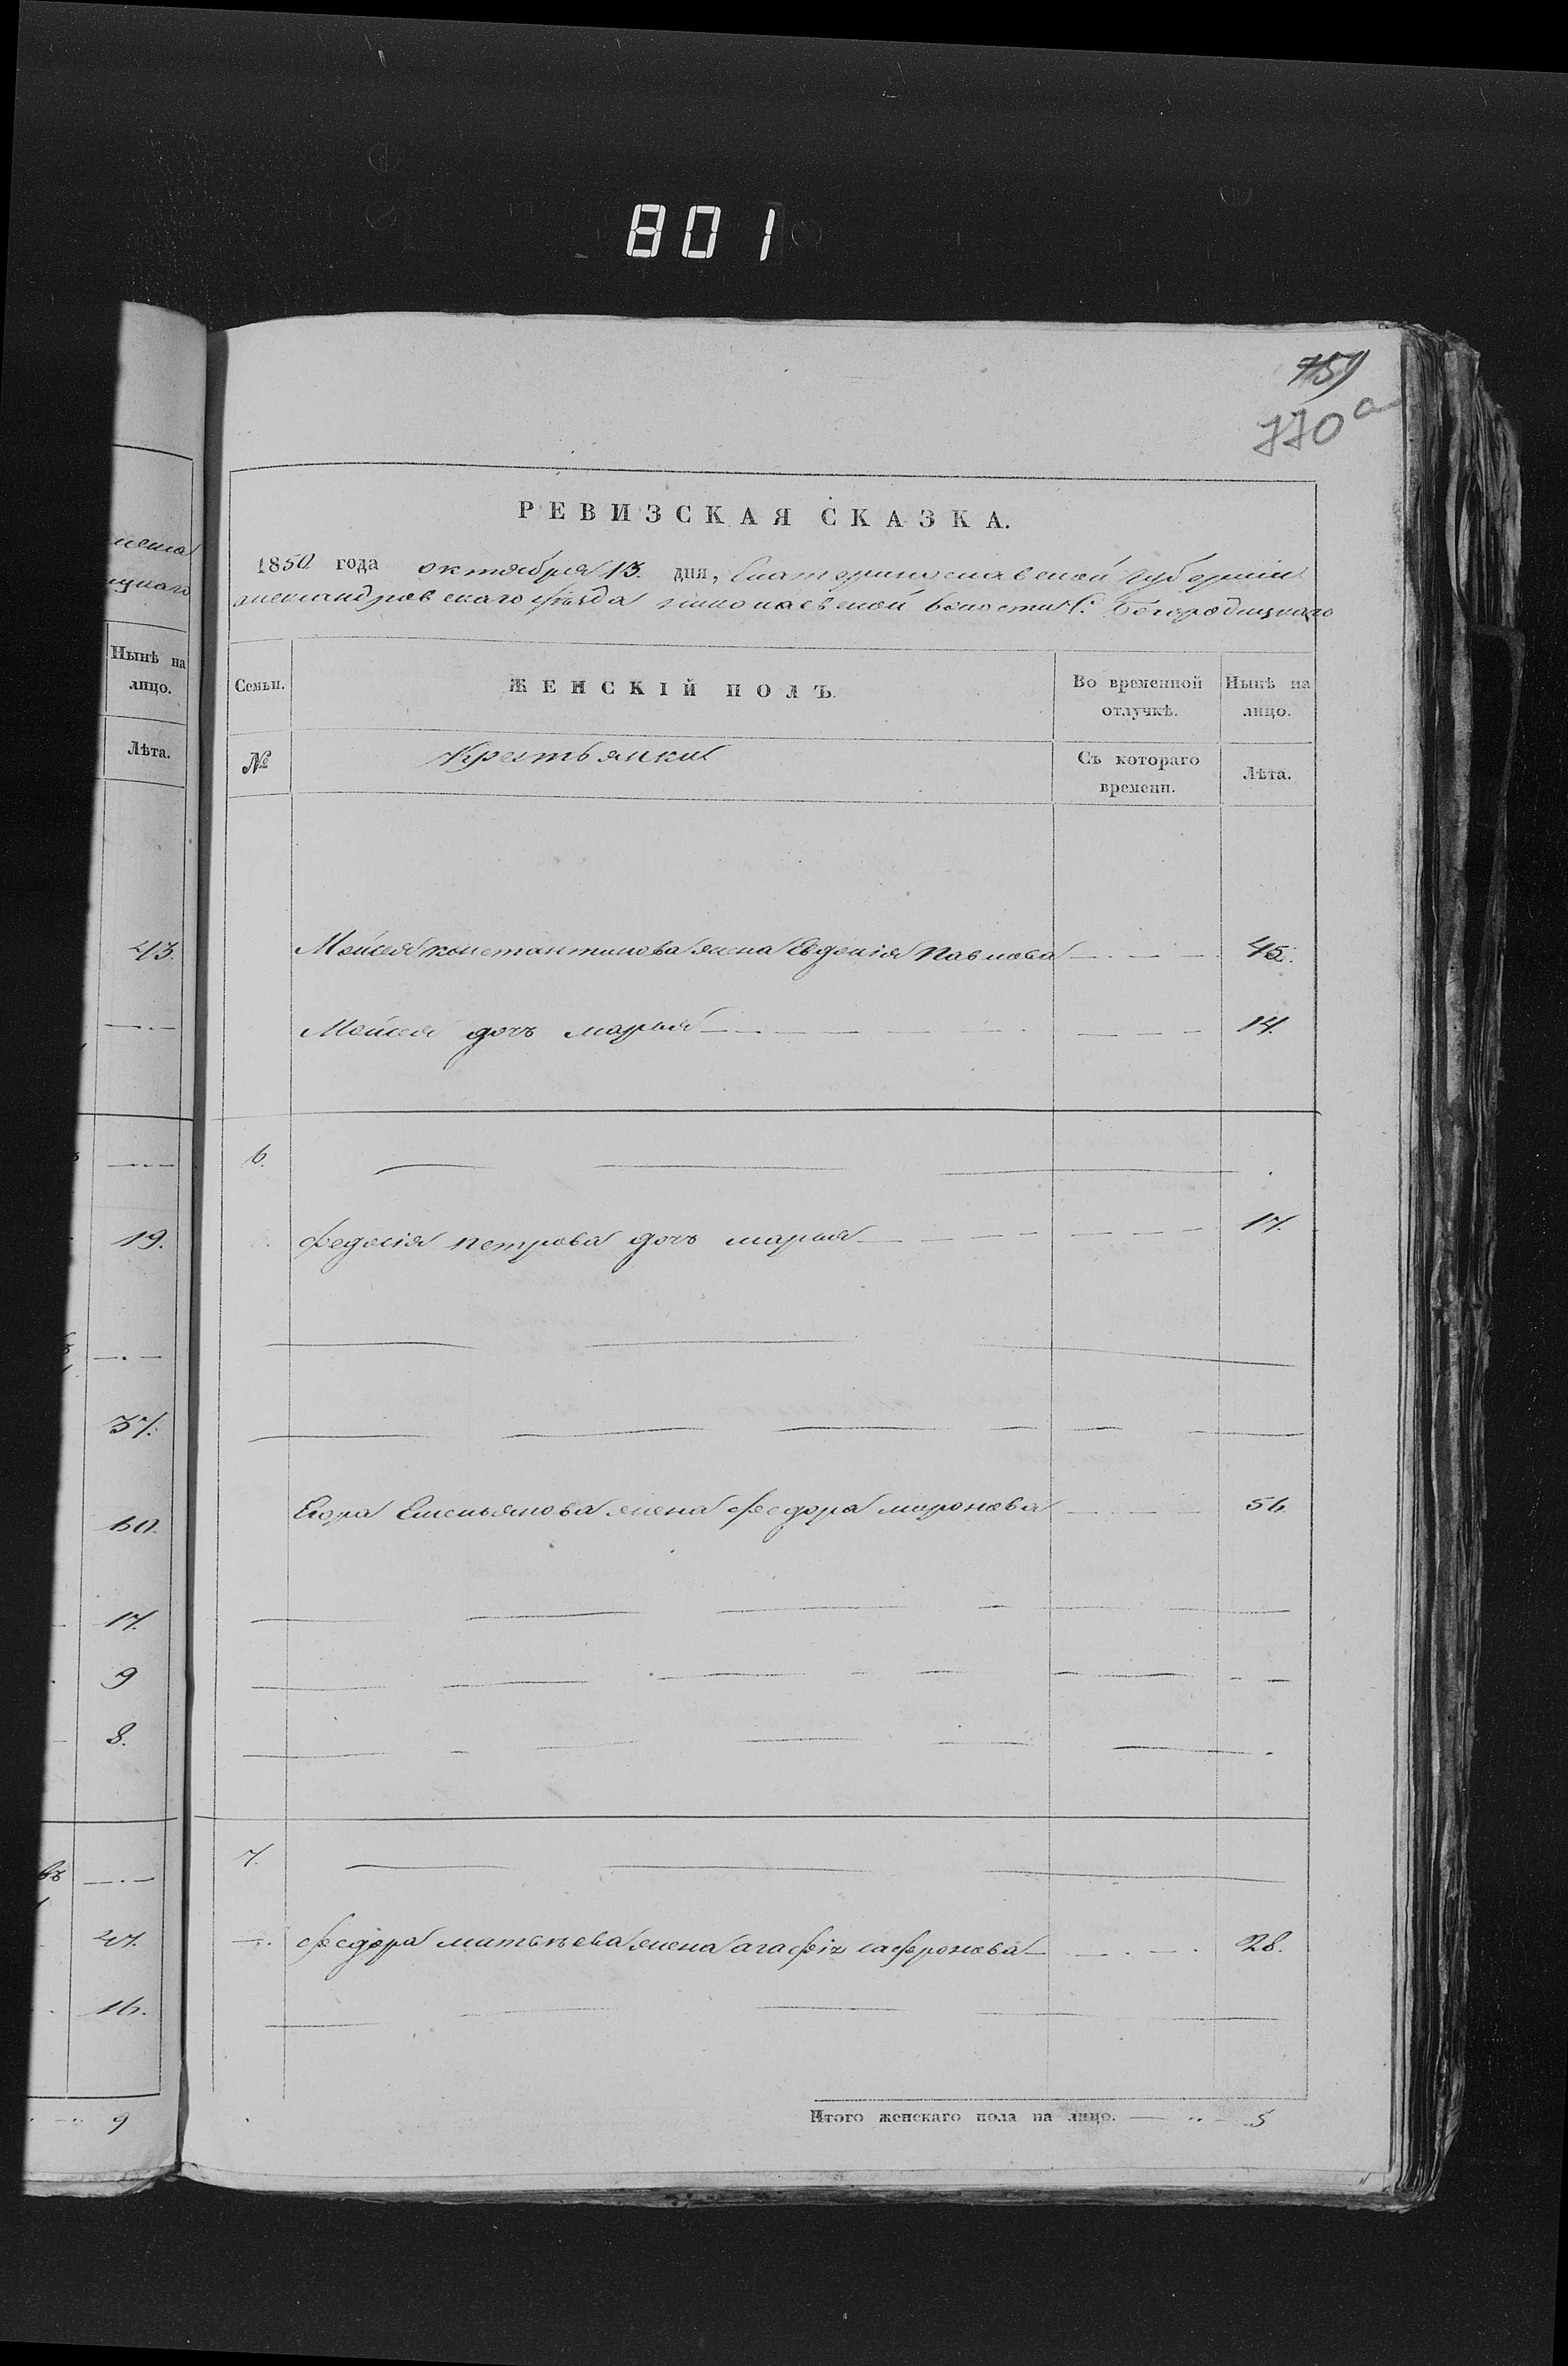 801
759
770 а
РЕВИЗСКАЯ СКАЗКА.
1850 года октября 13. дня, Екатеринославской губернiи
александровскаго уѣзда николаевской волости С. Богородицкаго
Семьи.
ЖЕНСКІЙ ПОЛЪ.
Во временной отлучкѣ.
Нынѣ на лицо.
№
Крестьянки
Съ котораго времени.
Лѣта.
Мойсея константинова жена Евдокія Павлова — . — — . 45.
Мойсея дочь марья — . — — — — — 14.
6.
федосія петрова дочь марья — — — — — — 17.
Егора Емельянова жена федора миронова — . — . — 56.
7.
— . федора матвѣева жена агафія сафронова — . — . 28.
Итого женскаго пола на лицо. — .. — 5
Нынѣ на
лицо.
Лѣта.
43.
19.
37.
60.
17.
9
8.
въ
27.
16.
9